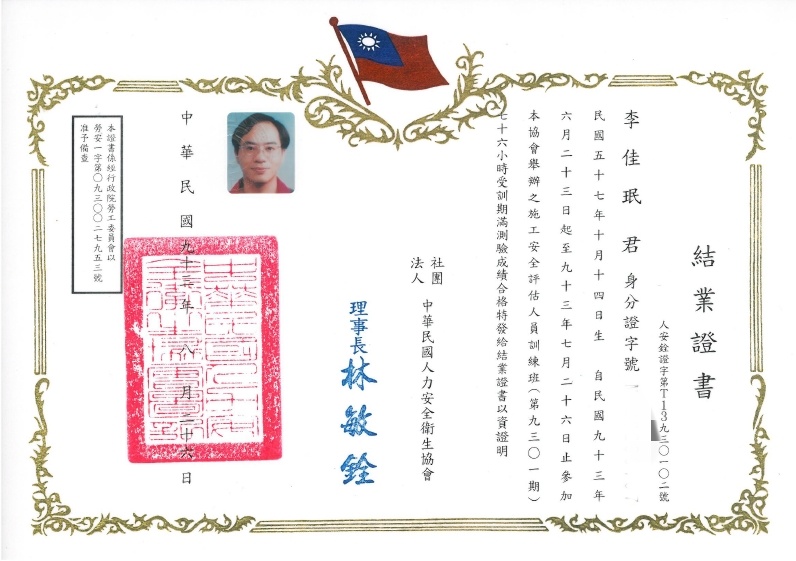 結業證書
人安銓證字第T13九三〇一〇二號
李佳珉 君 身分證字號
民國五十七年十月十四日生 自民國九十三年
六月二十三日起至九十三年七月二十六日止參加
本協會舉辦之施工安全評估人員訓練班(第九三〇一期)
七十六小時受訓期滿測驗成績合格特發給結業證書以資證明
社團
法人
中華民國人力安全衛生協會
理事長 林敏銓
中華民國九十三年八月二十六日
本證書係經行政院勞工委員會以
勞安一字第〇九三〇〇二七九五三號
准予備查